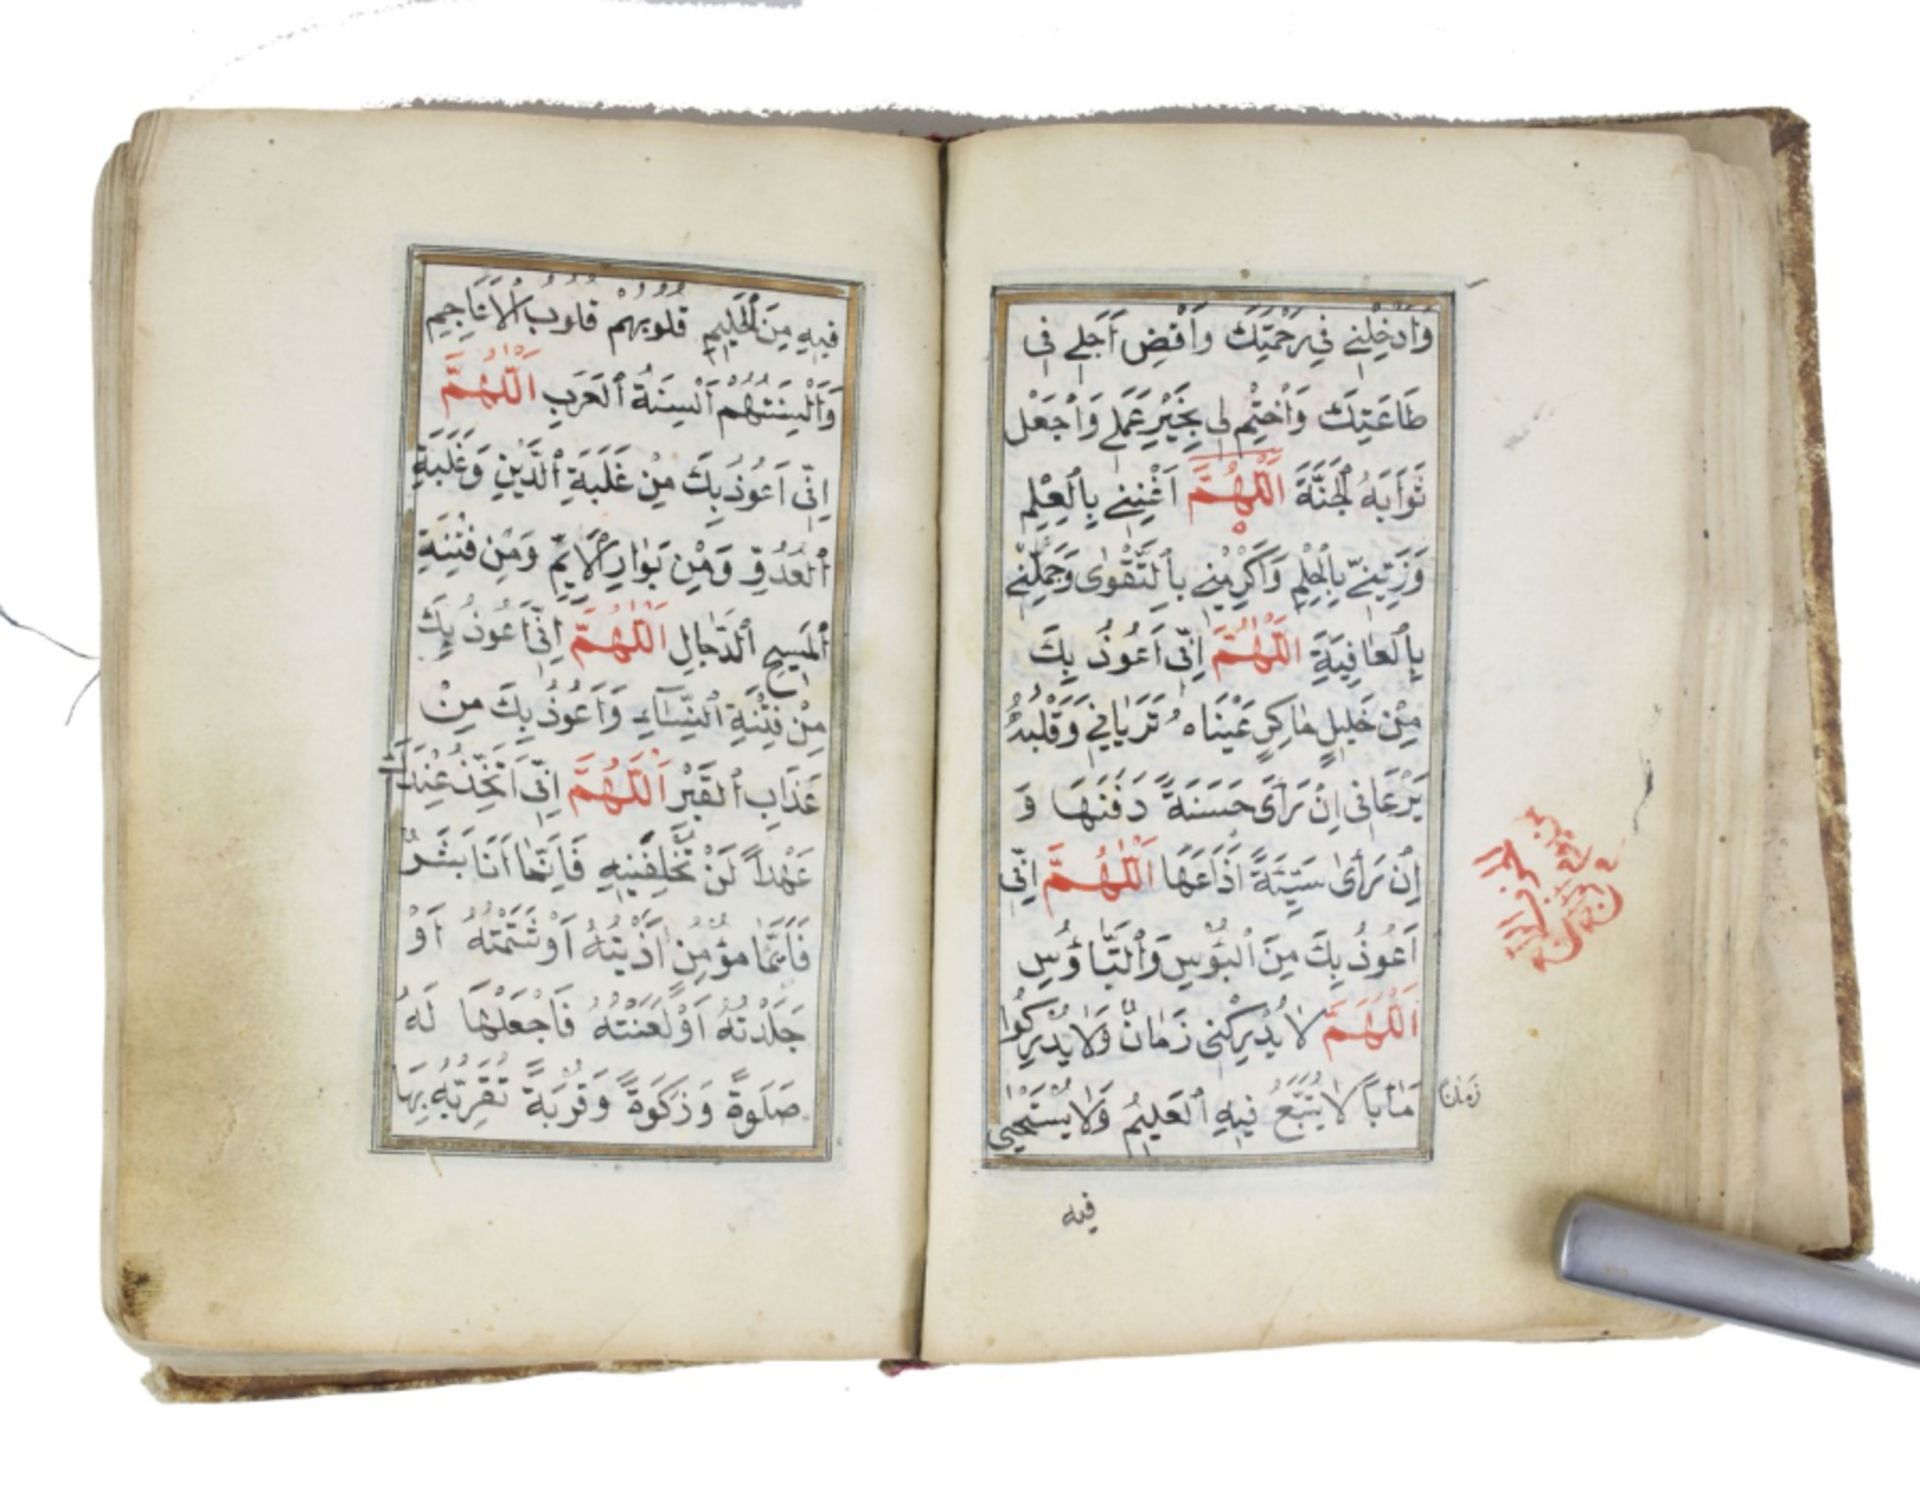 وَاَدْخِلْنِي فِي رَحْمَتِكَ وَاَقْضِ اَجَلِي فِي
طَاعَتِكَ وَاخْتِمْ لِي بِخَيْرِ عَمَلِي وَاَجْعَلْ
ثَوَابَهُ الْجَنَّةَ اَللّٰهُمَّ اَغْنِنِي بِالْعِلْمِ
وَزَيِّنِّي بِالْحِلْمِ وَاَكْرِمْنِي بِالتَّقْوٰى وَجَمِّلْنِي
بِالْعَافِيَةِ اَللّٰهُمَّ اِنِّي اَعُوذُ بِكَ
مِنْ خَلِيلٍ مَاكِرٍ عَيْنَاهُ تَرَيَانِي وَقَلْبُهُ
يَرْعَانِي اِنْ رَأَى حَسَنَةً دَفَنَهَا وَ
اِنْ رَأَى سَيِّئَةً اَذَاعَهَا اَللّٰهُمَّ اِنِّي
اَعُوذُ بِكَ مِنَ الْبُؤْسِ وَالتَّبَاؤُسِ
اَللّٰهُمَّ لَا يُدْرِكْنِي زَمَانٌ وَلَا يُدْرِكُوا
زَمَانًا لَا يُتَّبَعُ فِيهِ الْعَلِيمُ وَلَا يُسْتَحْيٰى
زمانا
فيه
فِيهِ مِنَ الْحَلِيمِ قُلُوبُهُمْ قُلُوبُ الْاَعَاجِمِ
وَاَلْسِنَتُهُمْ اَلْسِنَةُ الْعَرَبِ اَللّٰهُمَّ
اِنِّي اَعُوذُ بِكَ مِنْ غَلَبَةِ الدَّيْنِ وَغَلَبَةِ
الْعَدُوِّ وَمِنْ بَوَارِ الْاَيِّمِ وَمِنْ فِتْنَةِ
الْمَسِيحِ الدَّجَّالِ اَللّٰهُمَّ اِنِّي اَعُوذُ بِكَ
مِنْ فِتْنَةِ النِّسَاءِ وَاَعُوذُ بِكَ مِنْ
عَذَابِ الْقَبْرِ اَللّٰهُمَّ اِنِّي اَتَّخِذُ عِنْدَكَ
عَهْدًا لَنْ تُخْلِفَنِيهِ فَاِنَّمَا اَنَا بَشَرٌ
فَاَيُّمَا مُؤْمِنٍ اَذَيْتُهُ اَوْ شَتَمْتُهُ اَوْ
جَلَدْتُهُ اَوْ لَعَنْتُهُ فَاجْعَلْهَا لَهُ
صَلٰوةً وَزَكٰوةً وَقُرْبَةً تُقَرِّبُهُ بِهَا